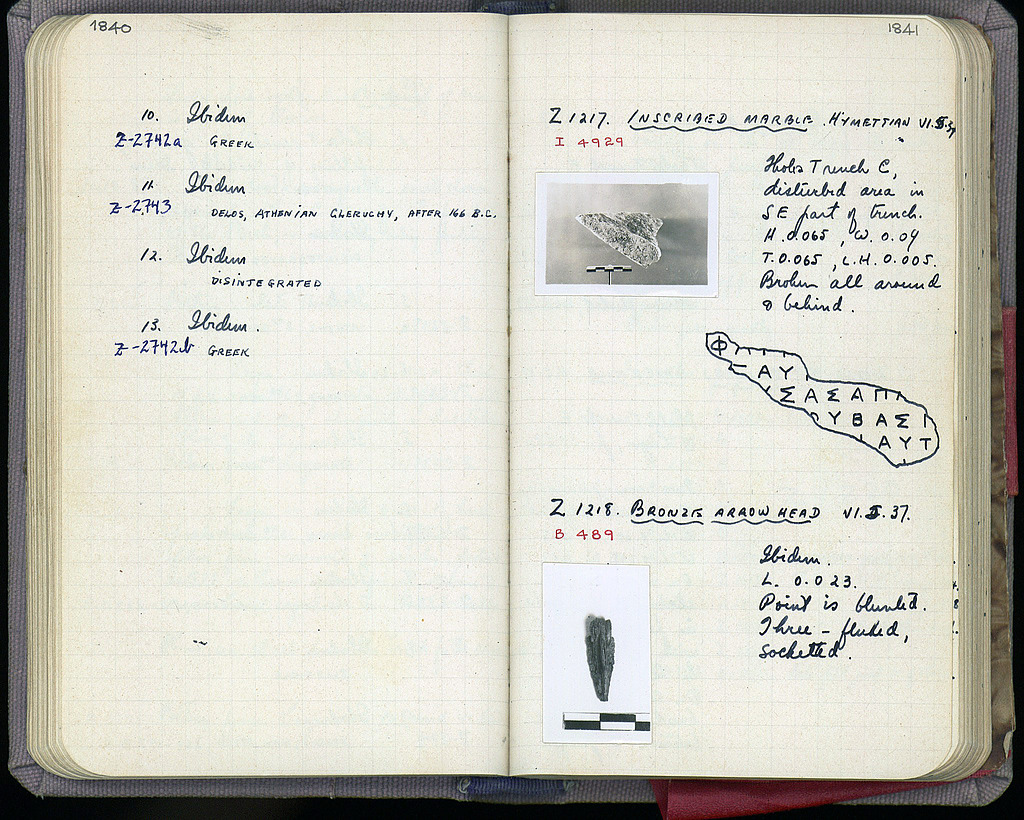 1840
10. Ibidem
Z-2742a GREEK
11. Ibidem
Z-2743 DELOS, ATHENIAN CLERUCHY, AFTER 166 B.C.
12. Ibidem
DISINTEGRATED
13. Ibidem.
Z-2742b GREEK
1841
Z 1217. INSCRIBED MARBLE. HYMETTIAN VI.3.37
I 4929
Tholos Trench C,
disturbed area in
SE part of trench.
H. 0.065, W. 0.09
T. 0.065, L.H. 0.005.
Broken all around
& behind.
Φ
ΑΥ
ΣΑΣΑΠ
ΥΒΑΣΙ
ΑΥΤ
Z 1218. BRONZE ARROW HEAD VI.3.37.
B 489
Ibidem.
L. 0.023.
Point is blunted.
Three-fluked,
socketted.